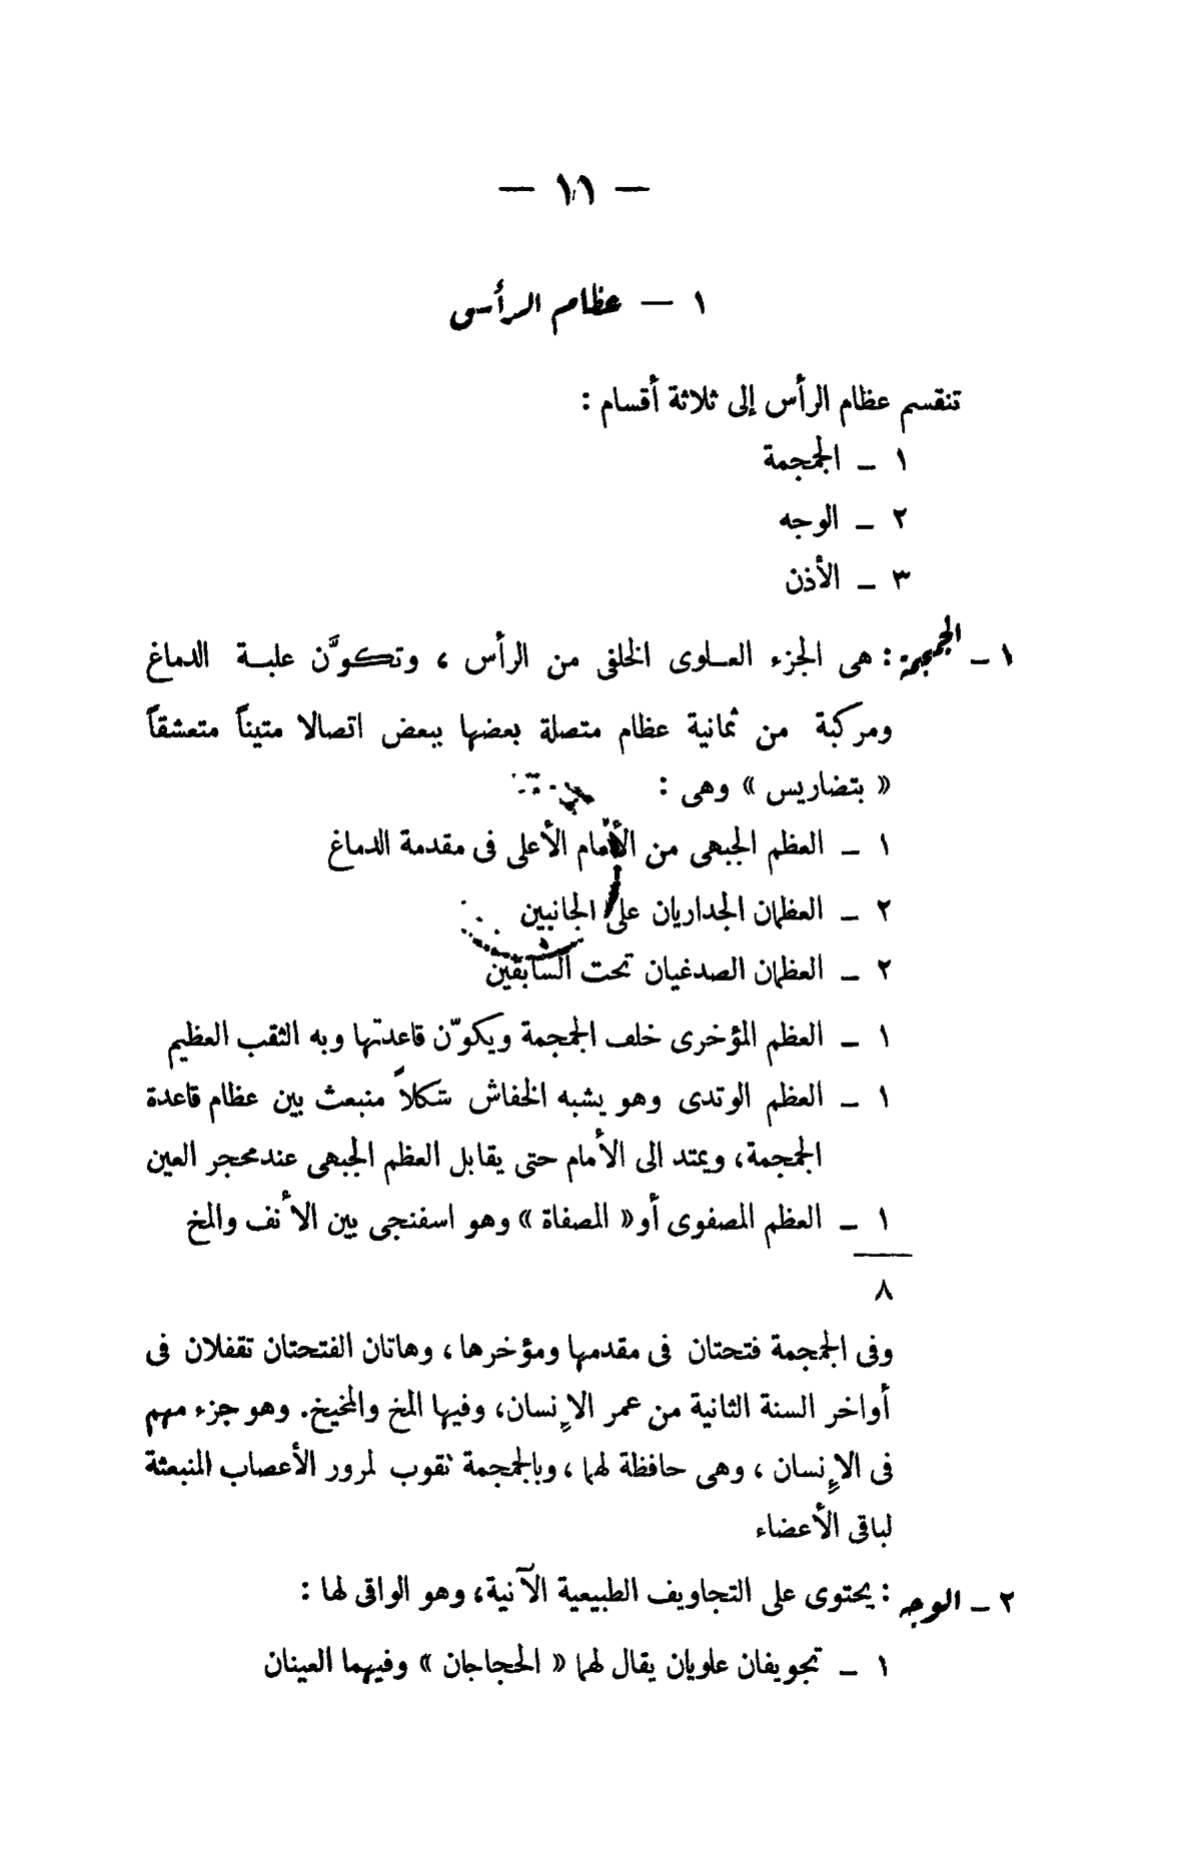 — ١١ —
١ — عظام الرأس
تنقسم عظام الرأس إلى ثلاثة أقسام :
١ – الجمجمة
٢ – الوجه
٣ – الأذن
١ – الجمجمة : هى الجزء العلوى الخلفى من الرأس ، وتكوَّن علبة الدماغ
ومركبة من ثمانية عظام متصلة بعضها ببعض اتصالا متيناً متعشقاً
« بتضاريس » وهى :
١ – العظم الجبهى من الأمام الأعلى فى مقدمة الدماغ
٢ – العظمان الجداريان على الجانبين
٢ – العظمان الصدغيان تحت السابقين
١ – العظم المؤخرى خلف الجمجمة ويكوّن قاعدتها وبه الثقب العظيم
١ – العظم الوتدى وهو يشبه الخفاش شكلاً منبعث بين عظام قاعدة
الجمجمة، ويمتد الى الأمام حتى يقابل العظم الجبهى عند محجر العين
١ – العظم المصفوى أو « المصفاة » وهو اسفنجى بين الأنف والمخ
٨
وفى الجمجمة فتحتان فى مقدمها ومؤخرها ، وهاتان الفتحتان تقفلان فى
أواخر السنة الثانية من عمر الإنسان، وفيها المخ والمخيخ. وهو جزء مهم
فى الإنسان ، وهى حافظة لهما ، وبالجمجمة ثقوب لمرور الأعصاب المنبعثة
لباقى الأعضاء
٢ – الوجه : يحتوى على التجاويف الطبيعية الآنية، وهو الواقى لها :
١ – تجويفان علويان يقال لهما « الحجاجان » وفيهما العينان